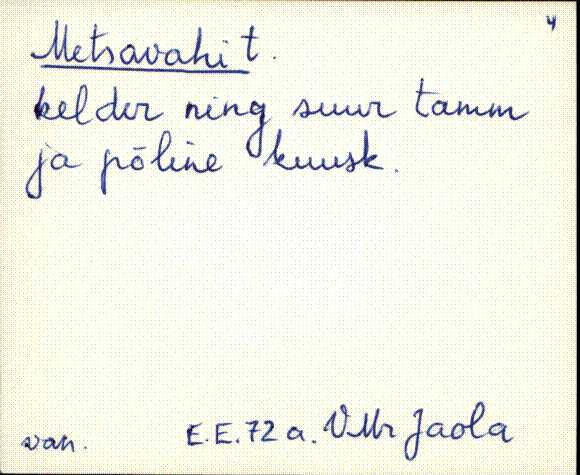 4
Metsavahi t.
kelder ning suur tamm
ja põline kuusk.
van. E.E. 72 a. VMr Jaola